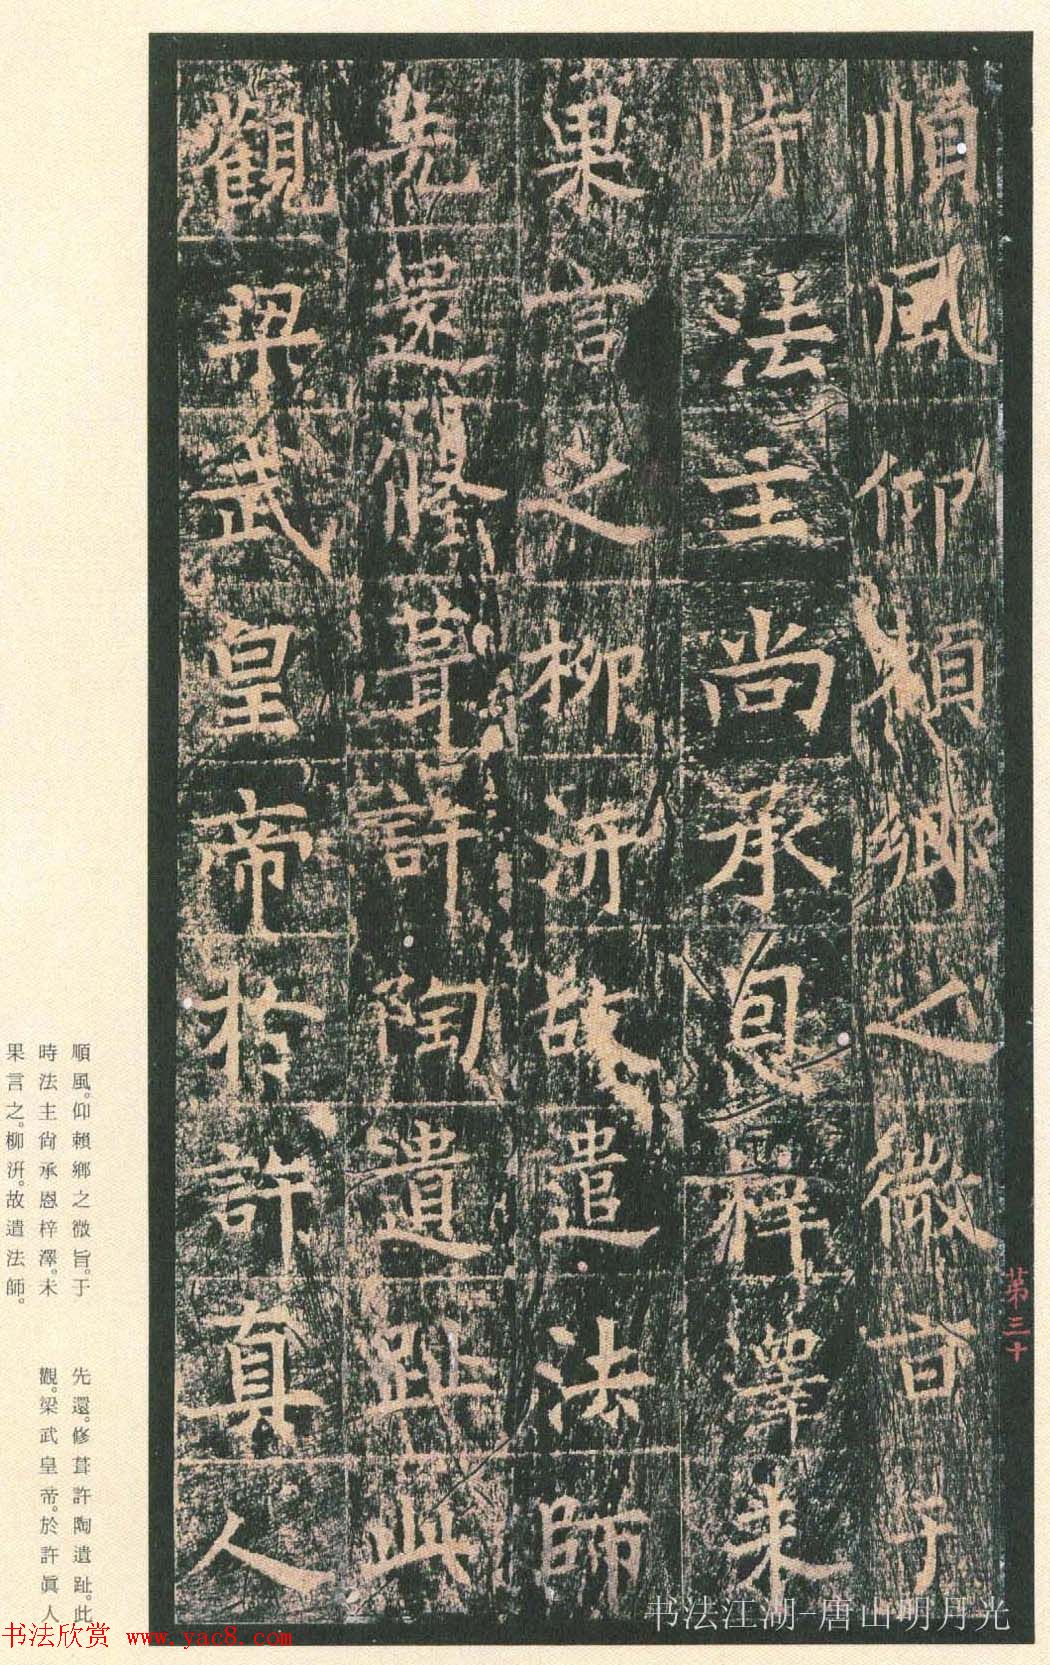 順風仰賴鄉之微旨于
時法主尚承恩梓澤未
果言之柳汧故遣法師
先還修葺許陶遺趾此
觀梁武皇帝於許真人
第三十
順風。仰賴鄉之微旨。于
時法主尙承恩梓澤。未
果言之。柳汧。故遣法師。
先還。修葺許陶遺趾。此
觀。梁武皇帝。於許眞人
书法江湖-唐山明月光
书法欣赏 www.yac8.com